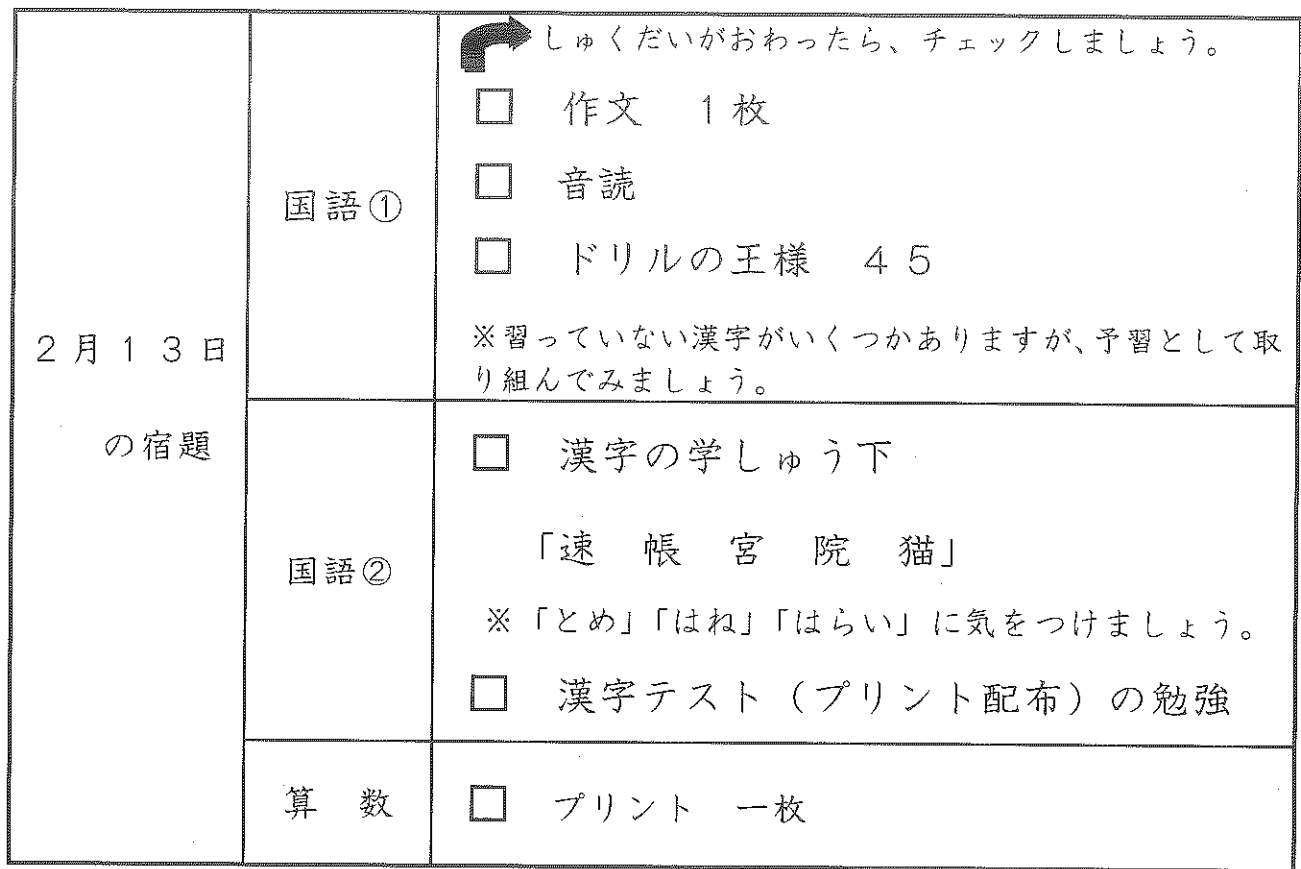 2月13日
の宿題
国語①
しゅくだいがおわったら、チェックしましょう。
□ 作文 1枚
□ 音読
□ ドリルの王様 45
※習っていない漢字がいくつかありますが、予習として取
り組んでみましょう。
国語②
□ 漢字の学しゅう下
「速 帳 宮 院 猫」
※「とめ」「はね」「はらい」に気をつけましょう。
□ 漢字テスト(プリント配布)の勉強
算 数
□ プリント 一枚